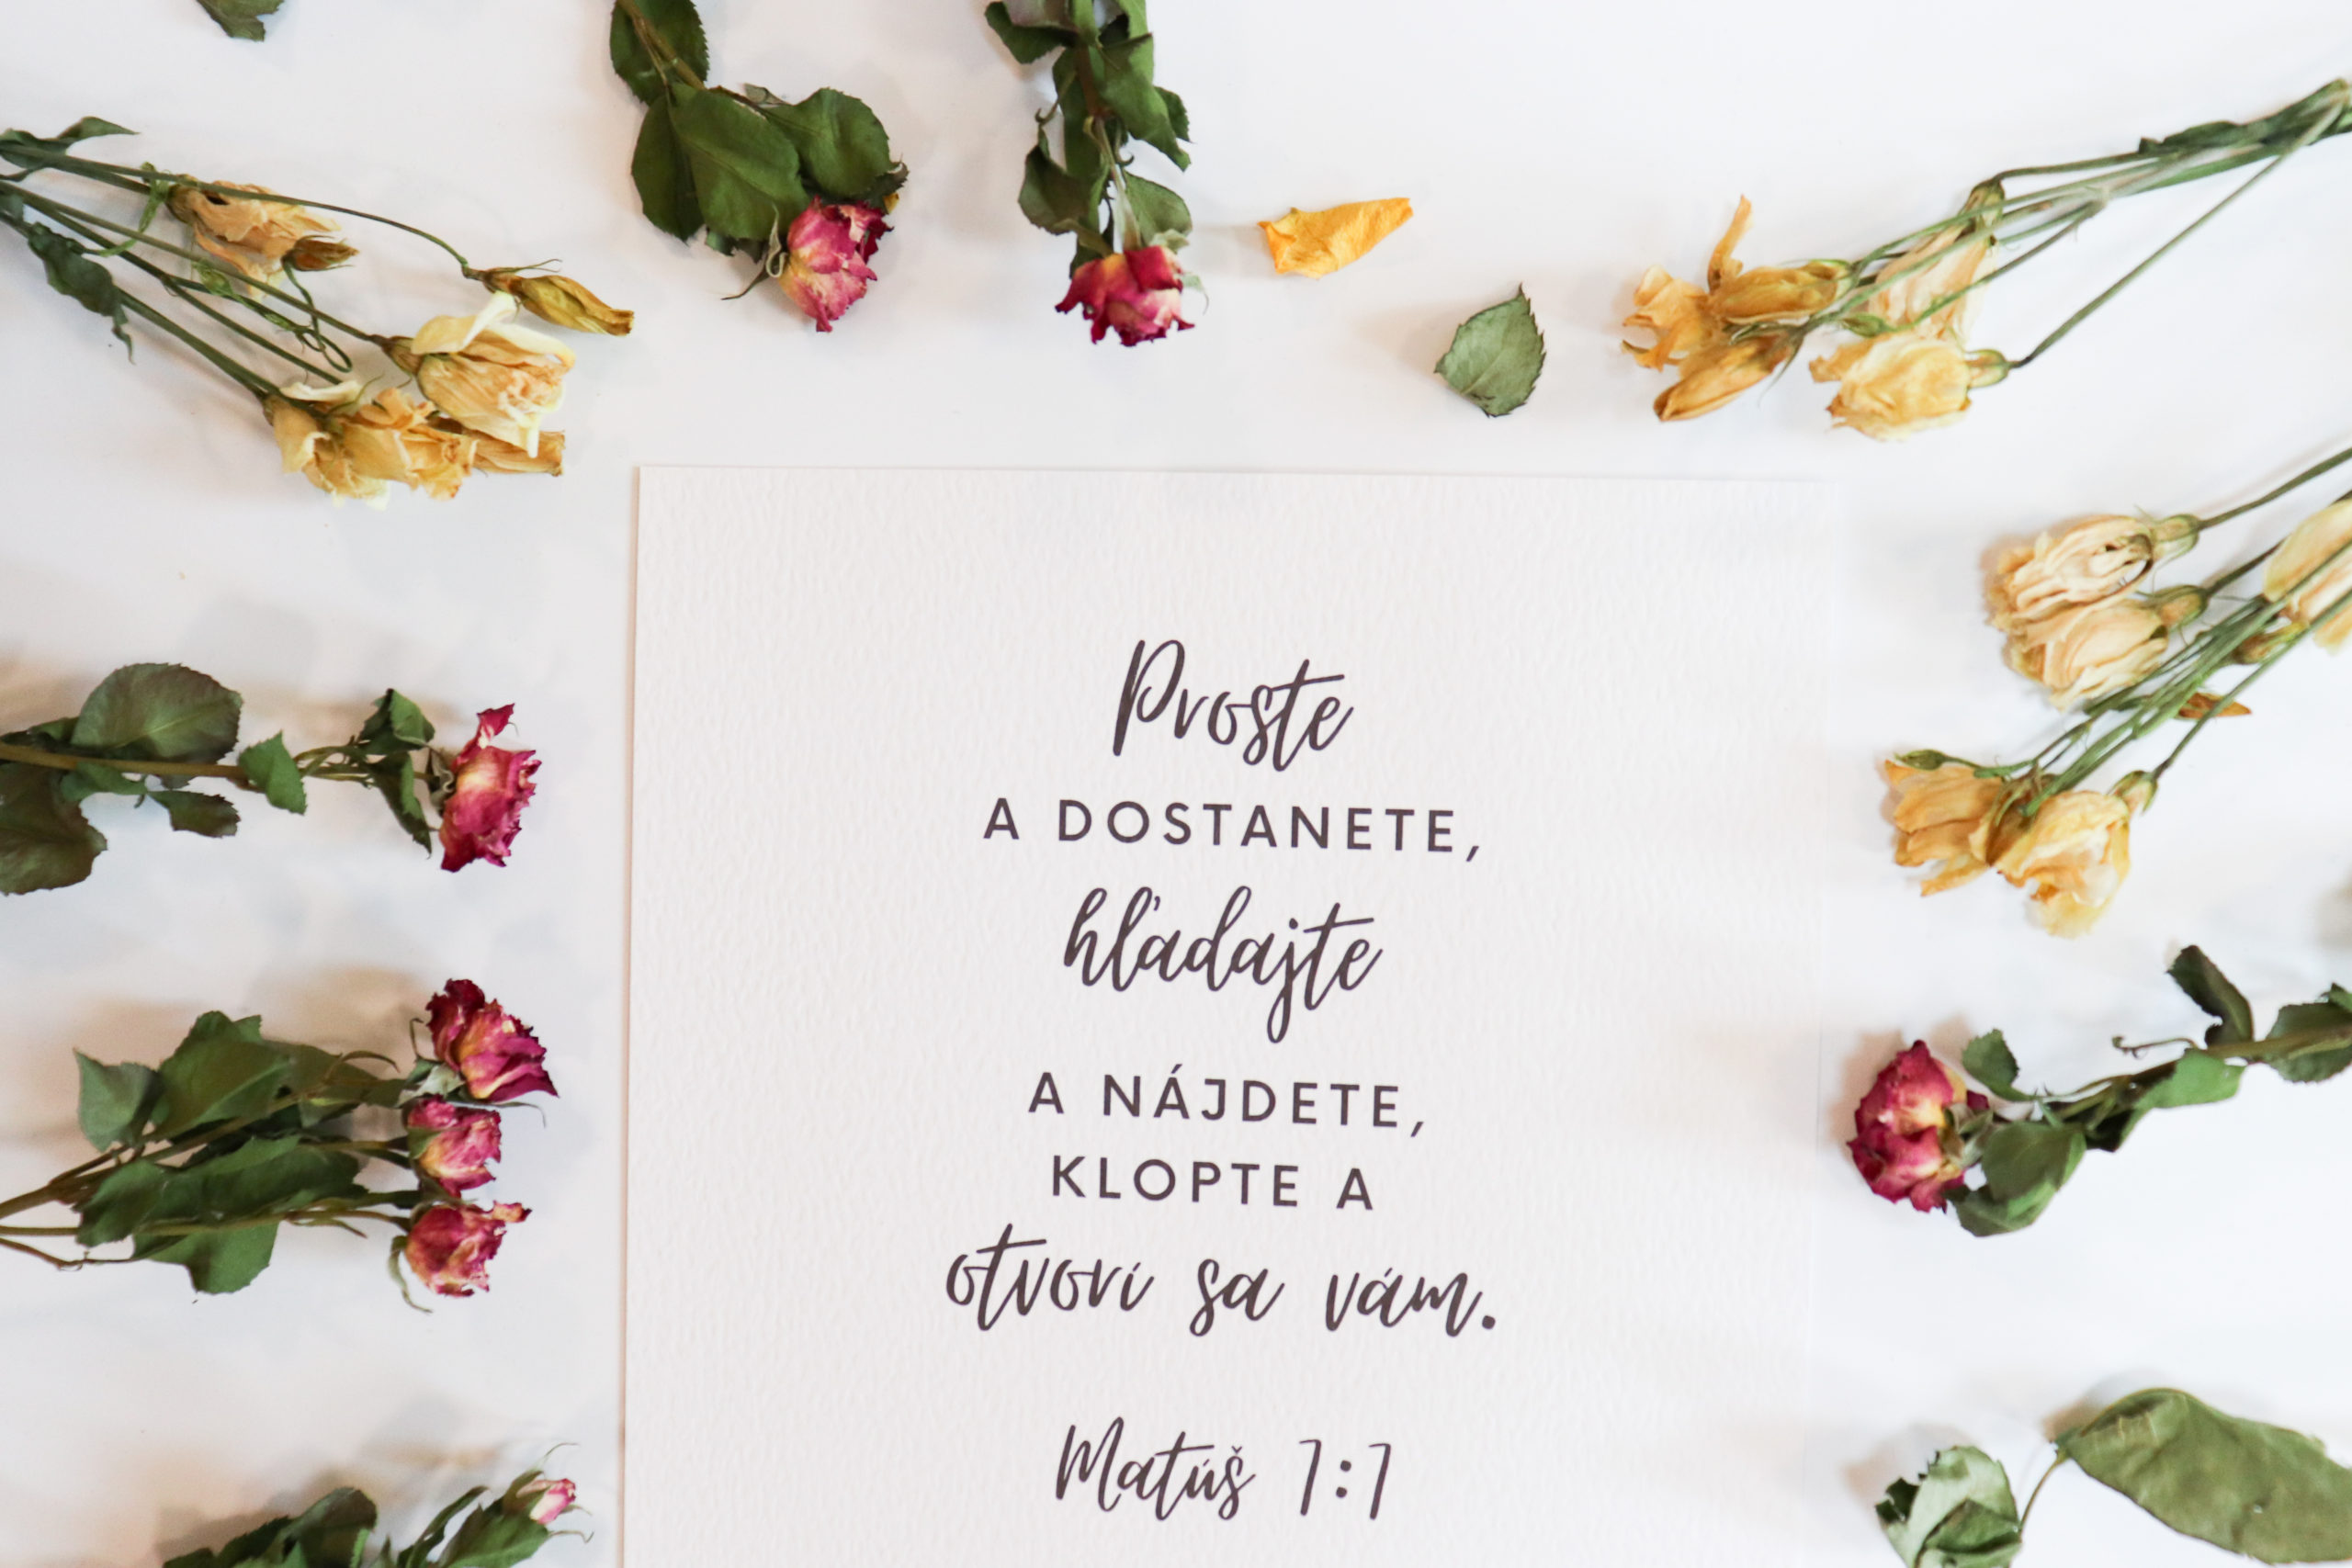 Proste
A DOSTANETE,
hľadajte
A NÁJDETE,
KLOPTE A
otvorí sa vám.
Matúš 7:7